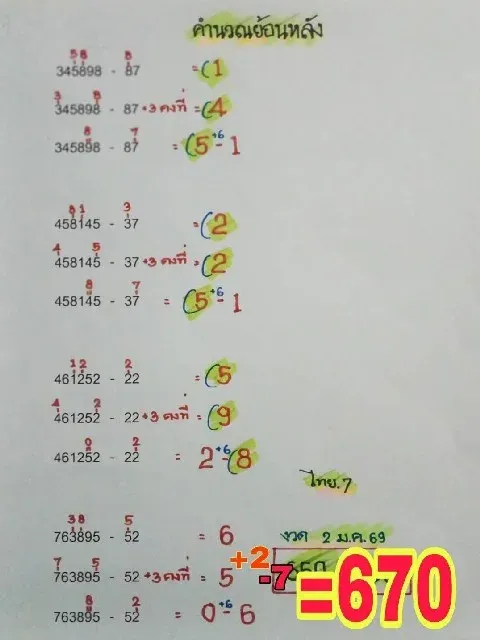 คำนวณย้อนหลัง
5 8 8
345898 - 87 = (1
3 8
345898 - 87 +3 คงที่ = (4
8 7 +6
345898 - 87 = (5 - 1
8 1 3
458145 - 37 = (2
4 5
458145 - 37 +3 คงที่ = (2
8 7 +6
458145 - 37 = (5 - 1
1 2 2
461252 - 22 = (5
4 2
461252 - 22 +3 คงที่ = (9
0 2 +6
461252 - 22 = 2 - (8
ไทย.7
3 8 5
763895 - 52 = 6 งวด 2 ม.ค.69
7 5
763895 - 52 +3 คงที่ = 5 +2 -7 =670
8 2 +6
763895 - 52 = 0 - 6